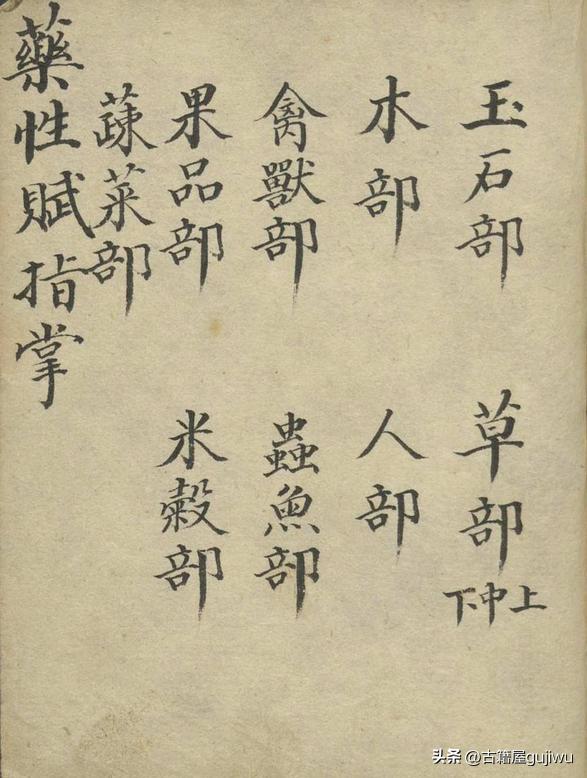 玉石部 草部上中下
木部 人部
禽獸部 蟲魚部
果品部 米穀部
蔬菜部
藥性賦指掌
头条 @古籍屋gujiwu